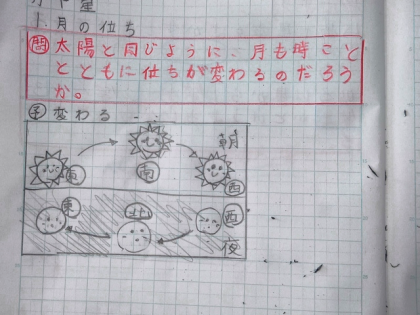 月や星
1. 月の位ち
問 太陽と同じように、月も時こく
とともに位ちが変わるのだろう
か。
予 変わる
朝
東 南 西
東 北 西
夜